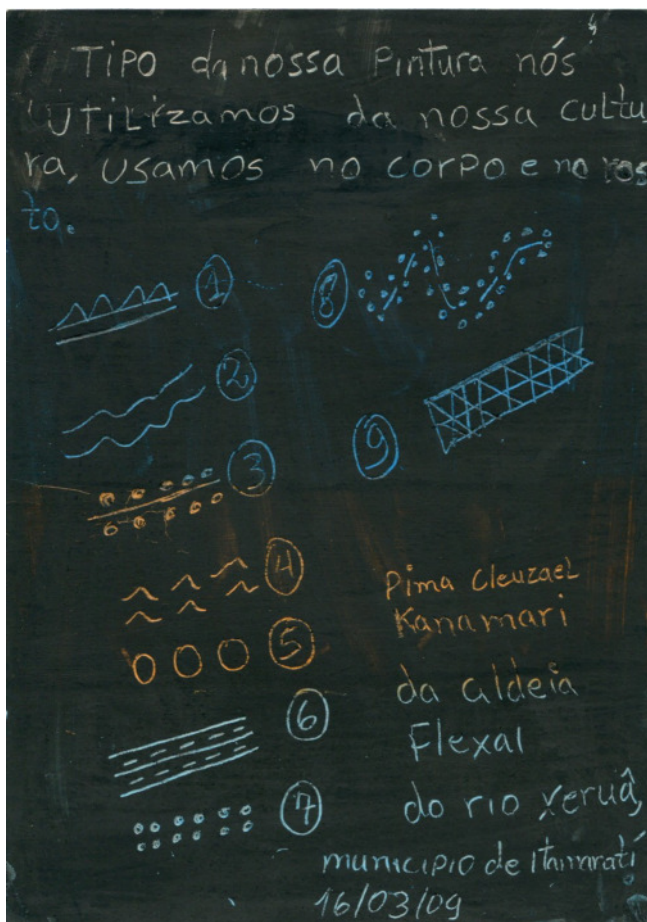 Tipo da nossa Pintura nós
utilizamos da nossa cultu
ra, usamos no corpo e no ros
to.
1
8
2
9
3
4
Pima Cleuzael
Kanamari
5
da aldeia
6
Flexal
7
do rio xeruã,
municipio de Itamaratí
16/03/09